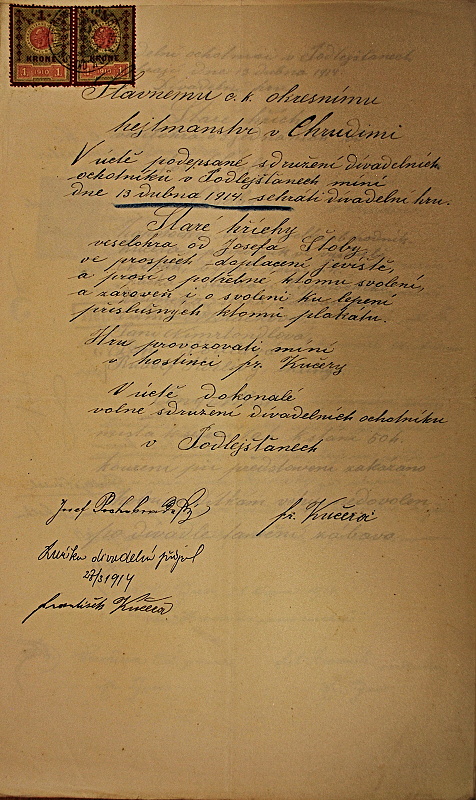 1 1
KRONE KRONE
1 1910 1 1 1910 1
Slavnému c. k. okresnímu
hejtmanství v Chrudimi
V úctě podepsané sdružení divadelních
ochotníků v Podlejšťanech míní
dne 13 dubna 1914. sehrati divadelní hru.
Staré hříchy
veselohra od Josefa Štoby
ve prospěch doplacení jeviště,
a prosí o potřebné ktomu svolení,
a zároveň i o svolení ku lepení
příslušných ktomu plakátu.
Hru provozovati míní
v hostinci fr. Kučery
V úctě dokonalé
volné sdružení divadelních ochotníku
v Podlejšťanech
Josef
fr. Kučera
divadelní
27/3 1914
František Kučera